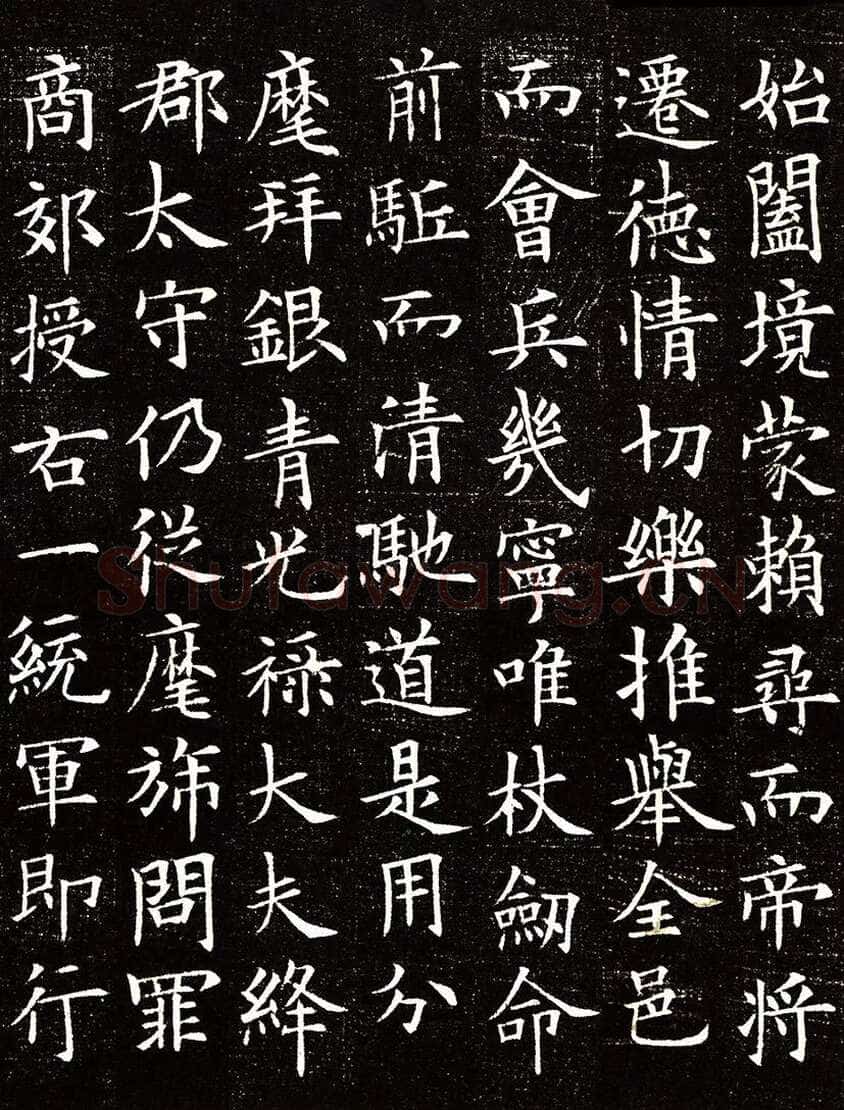 始闔境蒙賴尋而帝将
遷徳情切樂推舉全邑
而會兵幾寧唯杖劔命
前駈而清馳道是用分
麾拜銀青光祿大夫絳
郡太守仍従麾斾問罪
商郊授右一統軍即行
Shufawang.CN